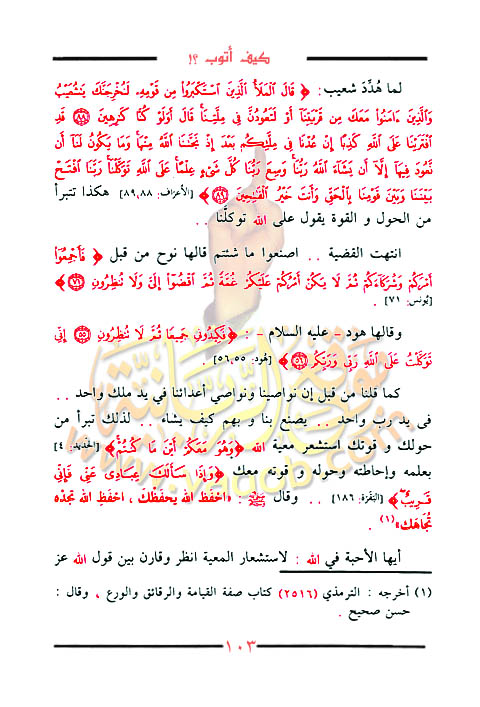 كيف أتوب ؟!
لما هُدِّدَ شعيب: ﴿ قَالَ ٱلْمَلَأُ ٱلَّذِينَ ٱسْتَكْبَرُوا۟ مِن قَوْمِهِۦ لَنُخْرِجَنَّكَ يَـٰشُعَيْبُ
وَٱلَّذِينَ ءَامَنُوا۟ مَعَكَ مِن قَرْيَتِنَآ أَوْ لَتَعُودُنَّ فِى مِلَّتِنَا قَالَ أَوَلَوْ كُنَّا كَـٰرِهِينَ ﴿٨٨﴾ قَدِ
ٱفْتَرَيْنَا عَلَى ٱللَّهِ كَذِبًا إِنْ عُدْنَا فِى مِلَّتِكُم بَعْدَ إِذْ نَجَّىٰنَا ٱللَّهُ مِنْهَا وَمَا يَكُونُ لَنَآ أَن
نَّعُودَ فِيهَآ إِلَّآ أَن يَشَآءَ ٱللَّهُ رَبُّنَا وَسِعَ رَبُّنَا كُلَّ شَىْءٍ عِلْمًا عَلَى ٱللَّهِ تَوَكَّلْنَا رَبَّنَا ٱفْتَحْ
بَيْنَنَا وَبَيْنَ قَوْمِنَا بِٱلْحَقِّ وَأَنتَ خَيْرُ ٱلْفَـٰتِحِينَ ﴿٨٩﴾ ﴾ [الأعراف: ٨٩،٨٨] هكذا تتبرأ
من الحول و القوة يقول على الله توكلَّنا ..
انتهت القضية .. اصنعوا ما شئتم قالها نوح من قبل ﴿ فَأَجْمِعُوٓا۟
أَمْرَكُمْ وَشُرَكَآءَكُمْ ثُمَّ لَا يَكُنْ أَمْرُكُمْ عَلَيْكُمْ غُمَّةً ثُمَّ ٱقْضُوٓا۟ إِلَىَّ وَلَا تُنظِرُونِ ﴿٧١﴾ ﴾
[يُونس: ٧١] .
وقالها هود - عليه السلام - : ﴿فَكِيدُونِى جَمِيعًا ثُمَّ لَا تُنظِرُونِ ﴿٥٥﴾ إِنِّى
تَوَكَّلْتُ عَلَى ٱللَّهِ رَبِّى وَرَبِّكُم ﴿٥٦﴾ ﴾ [هُود: ٥٦،٥٥] .
كما قلنا من قبل إن نواصينا ونواصي أعدائنا في يد ملك واحد ..
فى يد رب واحد .. يصنع بنا و بهم كيف يشاء .. لذلك تبرأ من
حولك و قوتك استشعر معية الله ﴿وَهُوَ مَعَكُمْ أَيْنَ مَا كُنتُمْ﴾ [الحَديد: ٤]
بعلمه وإحاطته وحوله و قوته معك ﴿وَإِذَا سَأَلَكَ عِبَادِى عَنِّى فَإِنِّى
قَرِيبٌ﴾ [البَقَرَة: ١٨٦] .. وقال ﷺ : «احْفَظِ الله يحفَظْكَ ، احْفَظِ الله تجدْه
تُجَاهَكَ»(١) .
أيها الأحبة في الله : لاستشعار المعية انظر وقارن بين قول الله عز
(١) أخرجه : الترمذي (٢٥١٦) كتاب صفة القيامة والرقائق والورع ، وقال :
حسن صحيح .
١٠٣